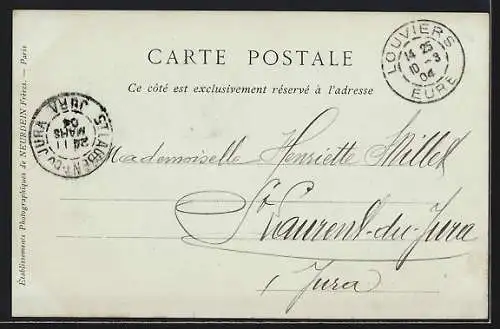 CARTE POSTALE
Ce côté est exclusivement réservé à l'adresse
LOUVIERS
14 25
10 - 3
04
EURE
ST LAURENT-DU-JURA
24 11
MARS
04
JURA
Mademoiselle Henriette Millet
St Laurent-du-Jura
Jura
Établissements Photographiques de NEURDEIN Frères. — Paris